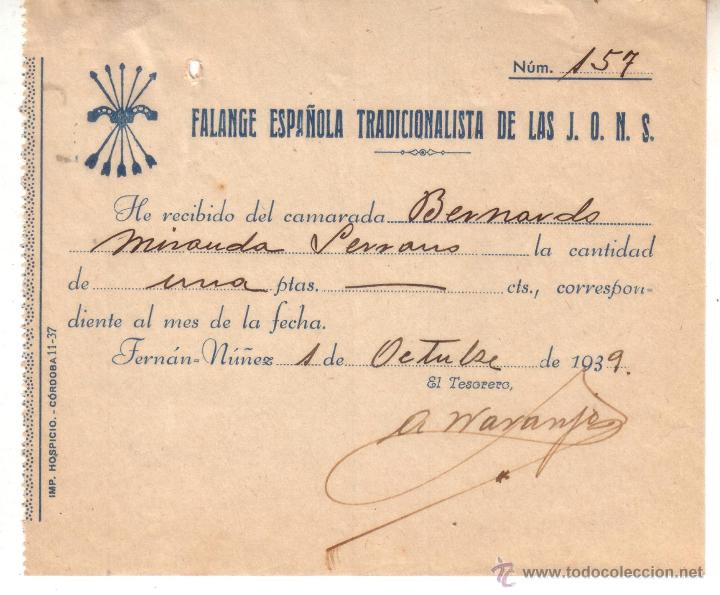 Núm. 157
FALANGE ESPAÑOLA TRADICIONALISTA DE LAS J. O. N. S.
He recibido del camarada Bernardo
Miranda Serrano la cantidad
de una ptas. — cts., correspon-
diente al mes de la fecha.
Fernán-Núñez 1 de Octubre de 1939.
El Tesorero,
A Naranjo
IMP. HOSPICIO. - CÓRDOBA 11-37
www.todocoleccion.net